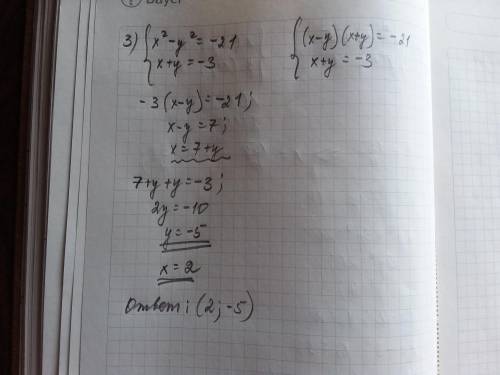 3) { x² - y² = -21
x + y = -3
{ (x-y)(x+y) = -21
x+y = -3
-3(x-y) = -21;
x-y = 7;
x = 7+y
7+y+y = -3;
2y = -10
y = -5
x = 2
Ответ: (2; -5)